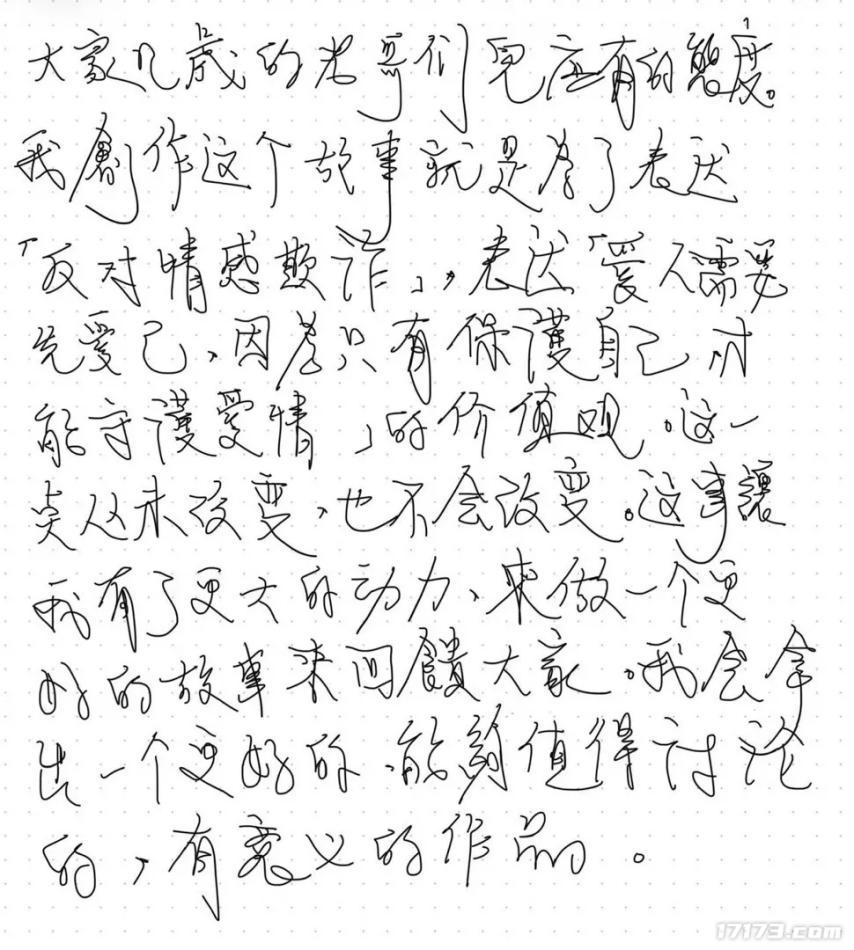 大家几歲的老哥们兒应有的態度。
我創作这个故事就是为了表达
「反对情感欺诈」,表达「愛人需要
先愛己、因为只有保護自己才
能守護愛情」的价值观。这一
点从未改变、也不会改变。这事讓
我有了更大的动力、來做一个更
好的故事来回饋大家。我会拿
出一个更好的、能夠值得讨论
的,有意义的作品。
17173.com